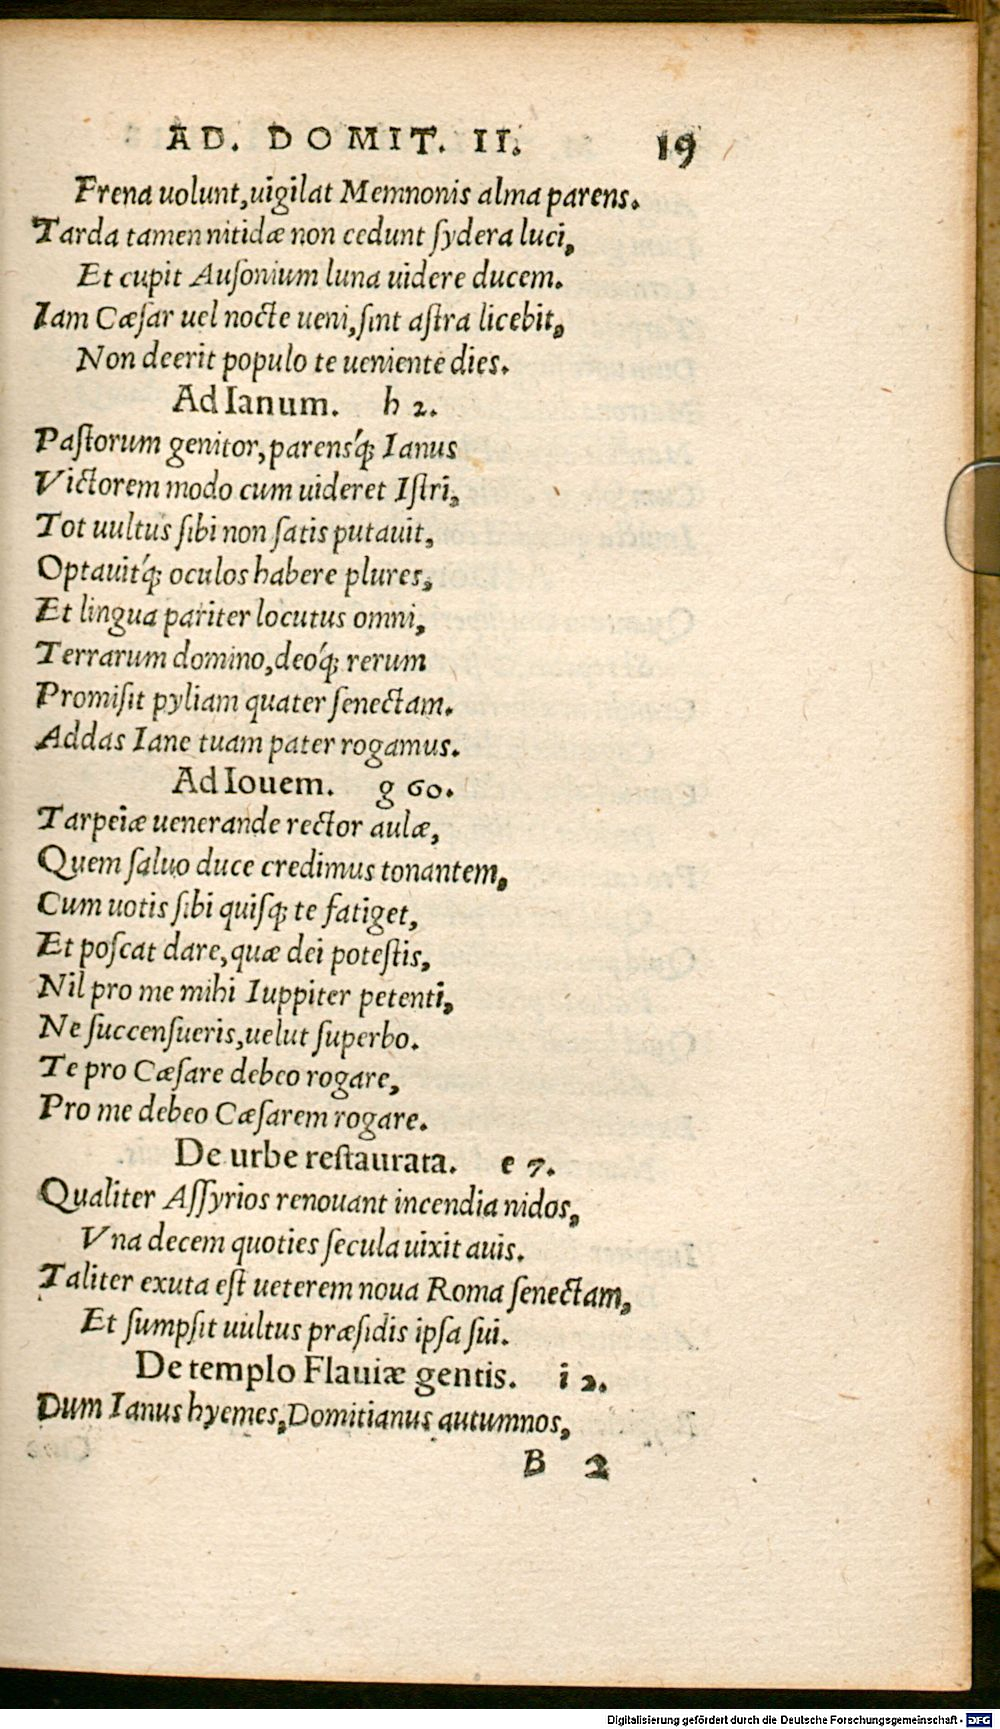 AD. DOMIT. II. 19
Frena uolunt, uigilat Memnonis alma parens.
Tarda tamen nitidæ non cedunt ſydera luci,
Et cupit Auſonium luna uidere ducem.
Iam Cæſar uel nocte ueni, ſint aſtra licebit,
Non deerit populo te ueniente dies.
Ad Ianum. h 2.
Paſtorum genitor, parensq́; Ianus
Victorem modo cum uideret Iſtri,
Tot uultus ſibi non ſatis putauit,
Optauitq́; oculos habere plures,
Et lingua pariter locutus omni,
Terrarum domino, deoq́; rerum
Promiſit pyliam quater ſenectam.
Addas Iane tuam pater rogamus.
Ad Iouem. g 60.
Tarpeiæ uenerande rector aulæ,
Quem ſaluo duce credimus tonantem,
Cum uotis ſibi quiſq; te fatiget,
Et poſcat dare, quæ dei poteſtis,
Nil pro me mihi Iuppiter petenti,
Ne ſuccenſueris, uelut ſuperbo.
Te pro Cæſare debeo rogare,
Pro me debeo Cæſarem rogare.
De urbe reſtaurata. e 7.
Qualiter Aſſyrios renouant incendia nidos,
Vna decem quoties ſecula uixit auis.
Taliter exuta eſt ueterem noua Roma ſenectam,
Et ſumpſit uultus præſidis ipſa ſui.
De templo Flauiæ gentis. i 2.
Dum Ianus hyemes, Domitianus autumnos,
B 2
Digitalisierung gefördert durch die Deutsche Forschungsgemeinschaft - DFG